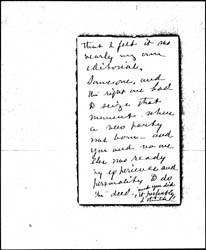 that I felt it was
nearly my own
editorial.
Someone, and
the right one had
to seize that
moment when
a new party
was born — and
you and no one
else was ready
by experience and
personality to do
the deed, and you did
it perfectly